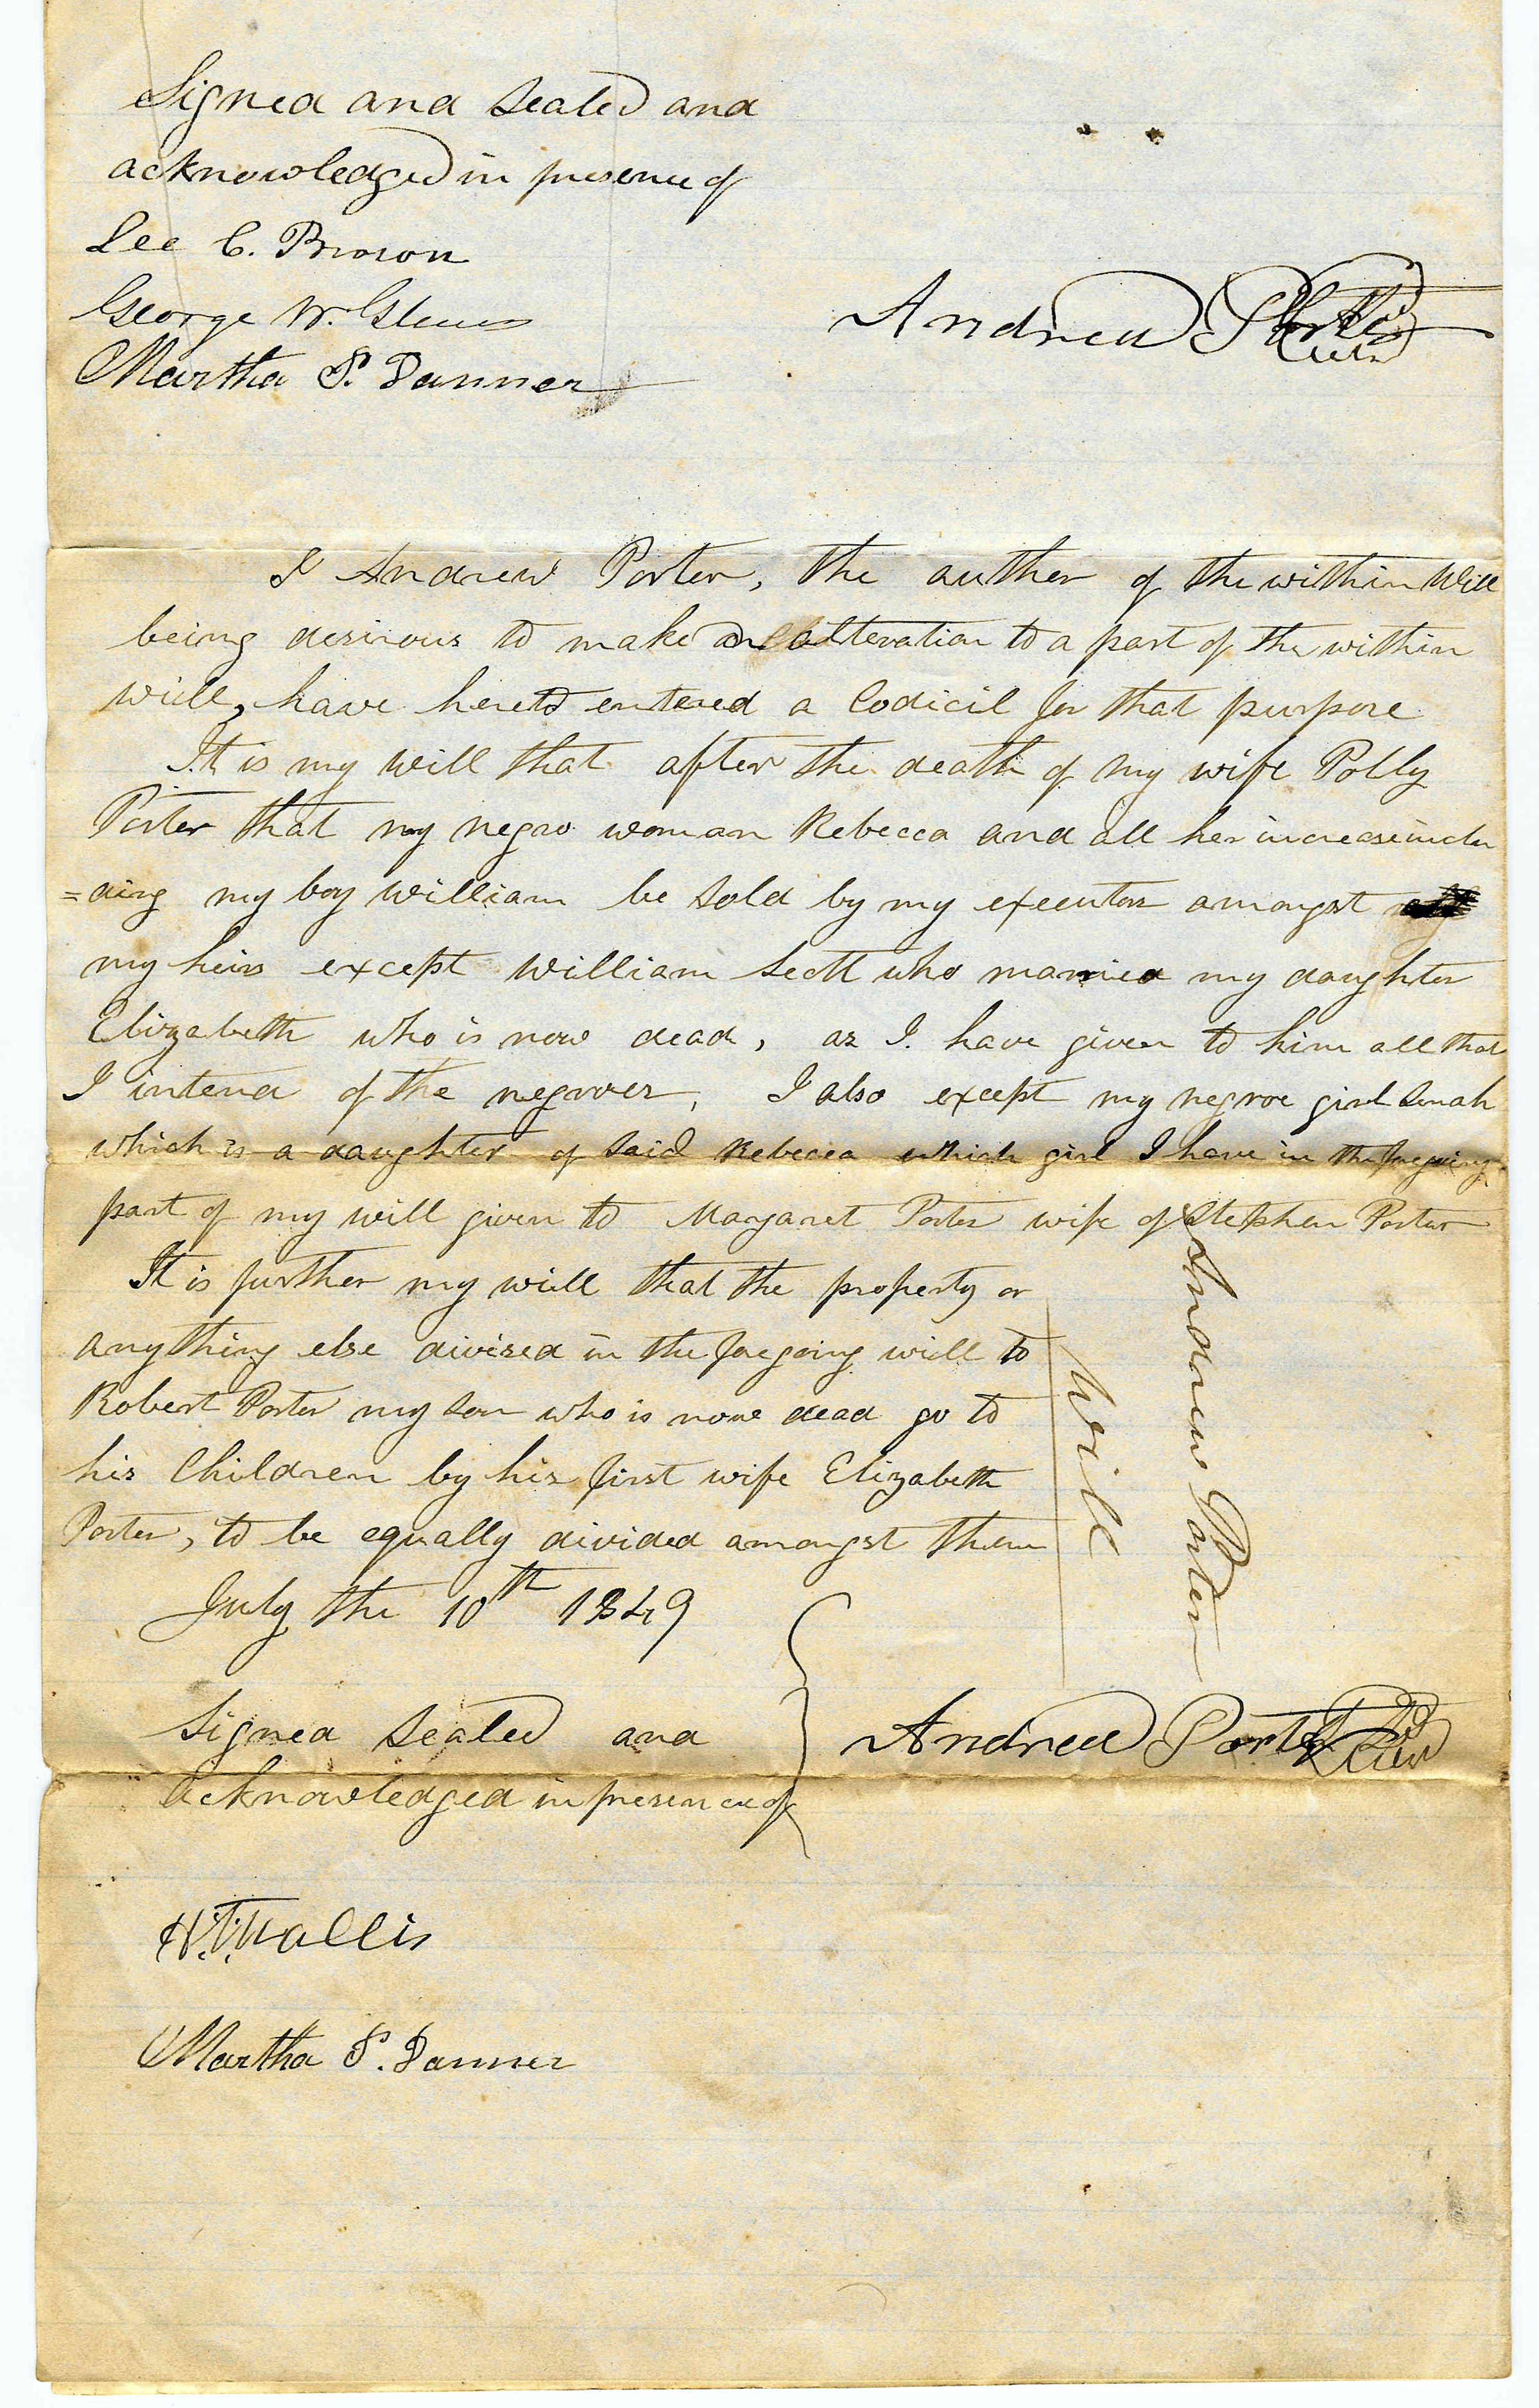 Signed and Sealed and
acknowledged in presence of
Lee C. Brown
George W.
Martha S. Danner
Andrew Porter
I Andrew Porter, the auther of the within Will
being desirous to make an alteration to a part of the within
will, have hereto entered a Codicil for that purpose
It is my will that after the death of my wife Polly
Porter that my negro woman Rebecca and all her increase inclu
=ding my boy William be sold by my executors amongst
my heirs except William Scott who married my daughter
Elizabeth who is now dead, as I have given to him all that
I intend of the negroes, I also except my negroe girl
which is a daughter of said Rebecca which girl I have in the foregoing
part of my will given to Margaret Porter wife of Stephen Porter
It is further my will that the property or
anything else divised in the foregoing will to
Robert Porter my son who is now dead go to
his Children by his first wife Elizabeth
Porter, to be equally divided amongst them
July the 10th 1849
Signed Sealed and
Acknowledged in presence of
Andrew Porter
Wallis
Martha S. Danner
Andrew Porter
Will